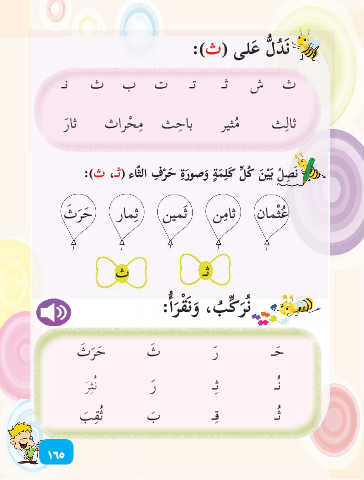 نَدُلُّ عَلى (ث):
ث ش ثـ تـ ت ب ث نـ
ثالِث مُثير باحِث مِحْراث ثارَ
نَصِلُ بَيْنَ كُلِّ كَلِمَةٍ وَصورَةِ حَرْفِ الثّاءِ (ثـ، ث):
عُثْمان ثامِن ثَمين ثِمار حَرَثَ
ثـ ث
نُرَكِّبُ، وَنَقْرَأُ:
حَـ رَ ثَ حَرَثَ
نُـ ثِـ رَ نُثِرَ
ثُـ قِـ بَ ثُقِبَ
١٦٥